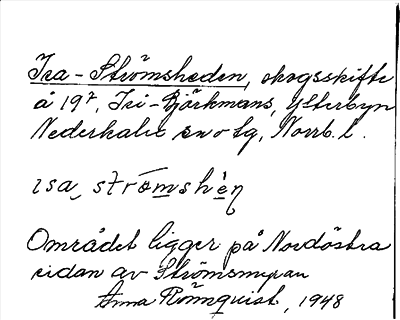 Isa-Strömsheden, skogsskifte
å 19², Isi-Björkmans, Ytterbyn
Nederkalix snotg, Norrb. l.
ɪsa strömshèn
Området ligger på Nordöstra
sidan av Strömsmyran
Anna Rönnquist, 1948